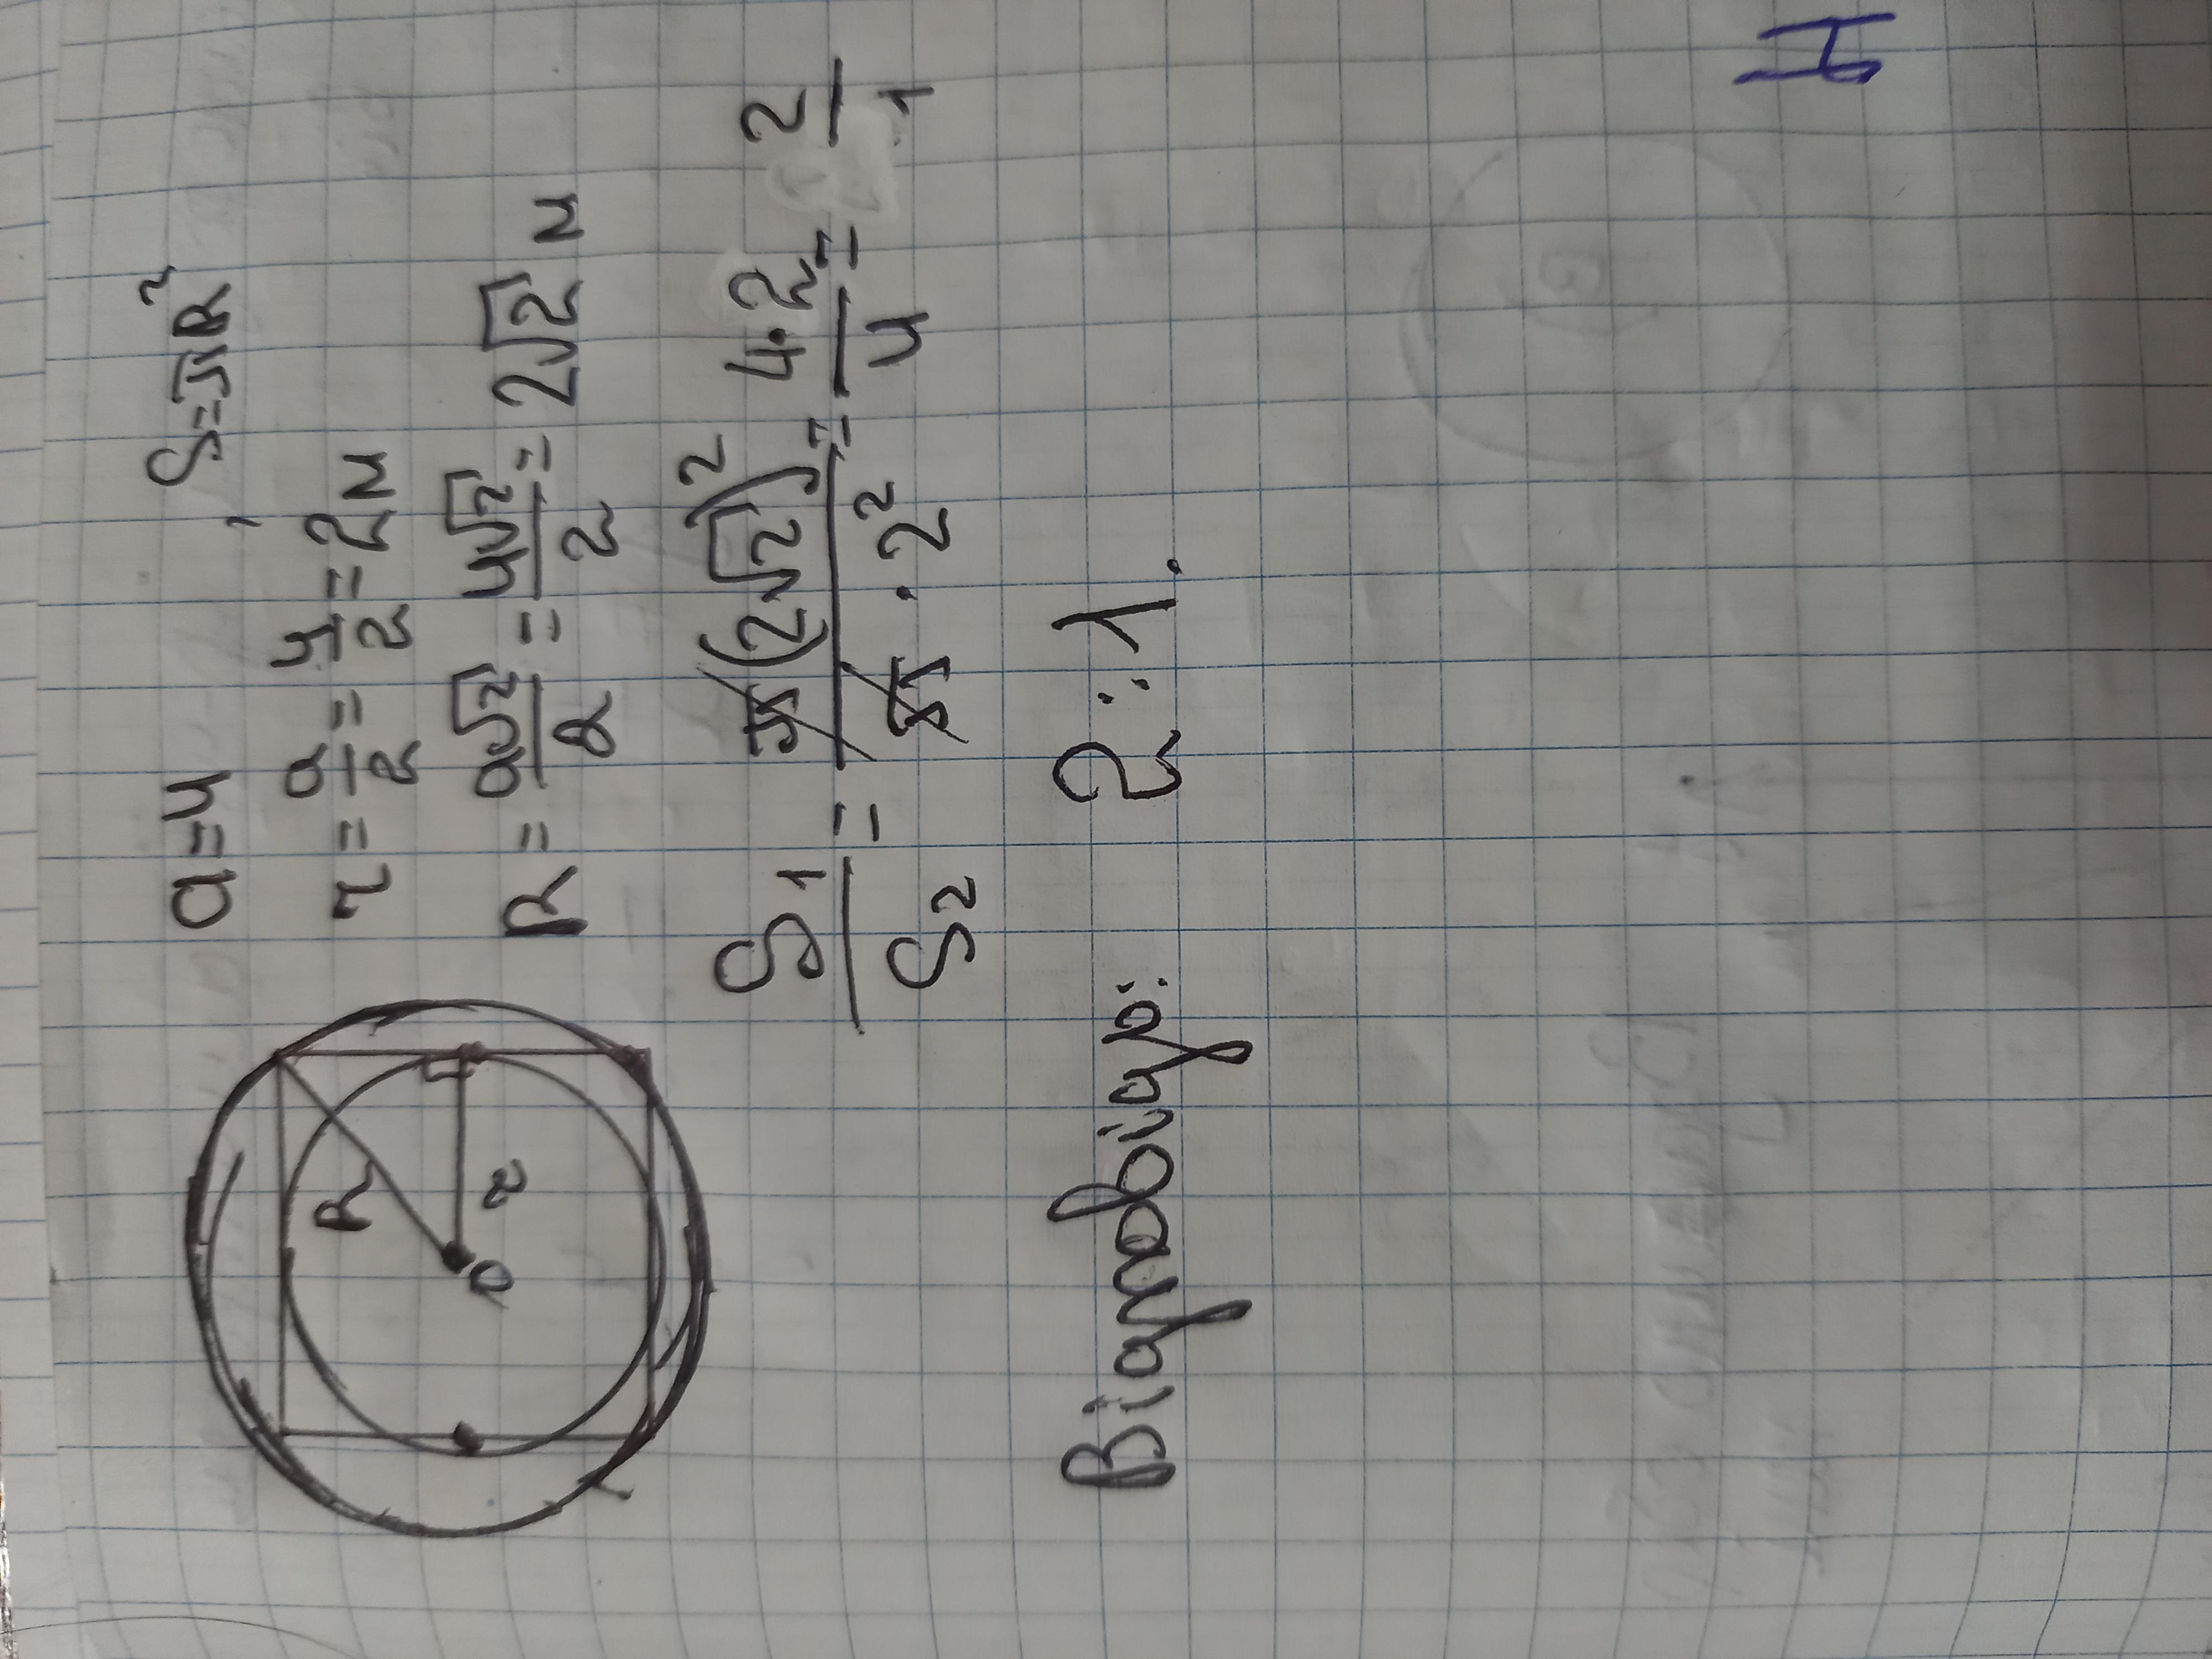 a=4, S=πR²
r = a/2 = 4/2 = 2м
R = a√2/2 = 4√2/2 = 2√2 м
S₁/S₂ = π(2√2)²/π · 2² = 4·2/4 = 2/1
R
r
O
Відповідь: 2:1.